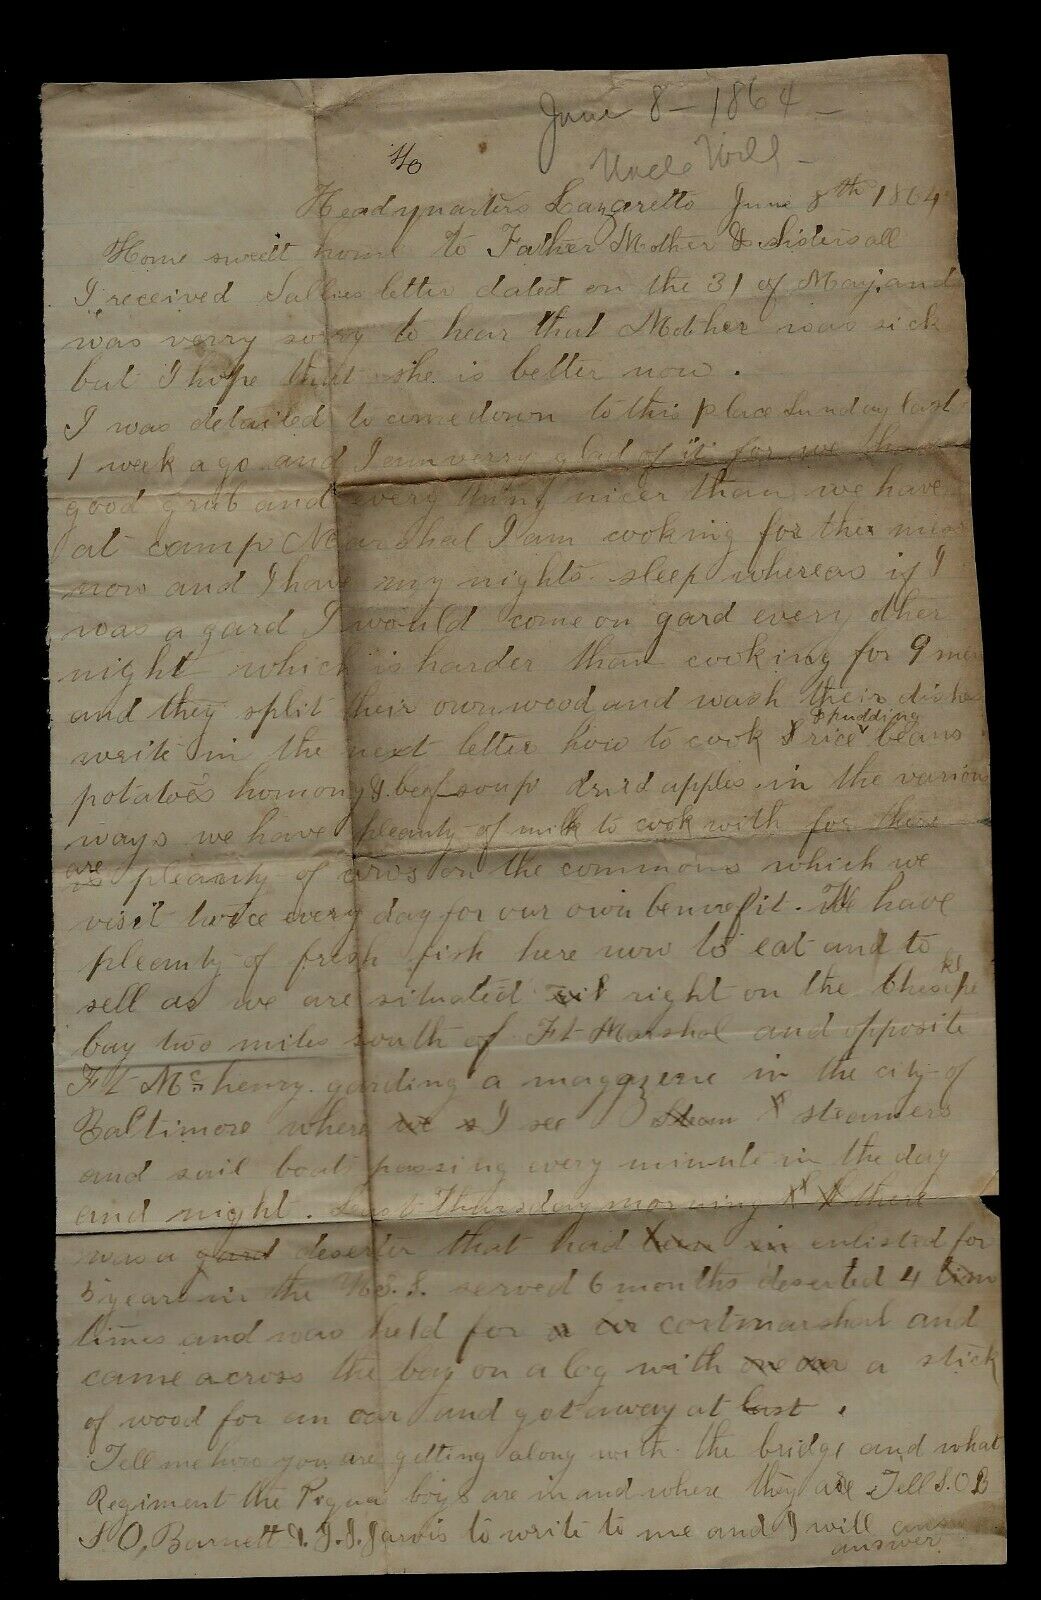 June 8 - 1864 -
Uncle Will -
Headquarters Lazaretto June 8th 1864
Home sweet home to Father Mother & sisters all
I received Sallies letter dated on the 31 of May, and
was verry sorry to hear that Mother was sick
but I hope that she is better now .
I was detailed to come down to this place Sunday last
1 week ago and I am verry glad of it for we
good grub and every thing nicer than we have
at camp Marshal I am cooking for the mess
now and I have my nights sleep whereas if I
was a gard I would come on gard every other
night which is harder than cooking for 9 men
and they split their own wood and wash their dishes
& pudding
write in the next letter how to cook rice beans
potatoes homony & beef soup drid apples in the various
ways we have pleanty of milk to cook with for there
are
is pleanty of cows on the commons which we
visit twice every day for our own bennefit. We have
pleanty of fresh fish here now to eat and to
sell as we are situated right on the Chesipe
bay two miles south of Ft Marshal and opposite
Ft Mc henry garding a magazene in the city of
Baltimore where we s I see steam steamers
and sail boats passing every minute in the day
and night . Last Thursday morning there
was a gard deserter that had been in enlisted for
5 years in the U.S.S. served 6 months deserted 4 tim
times and was held for a cortmarshal and
came across the bay on a log with one oar a stick
of wood for an oar and got away at last .
Tell me how you are getting along with the bridge and what
Regiment the Piqua boys are in and where they are Tell S.O B
S O, Barnett & J.J. Jarvis to write to me and I will
answer.